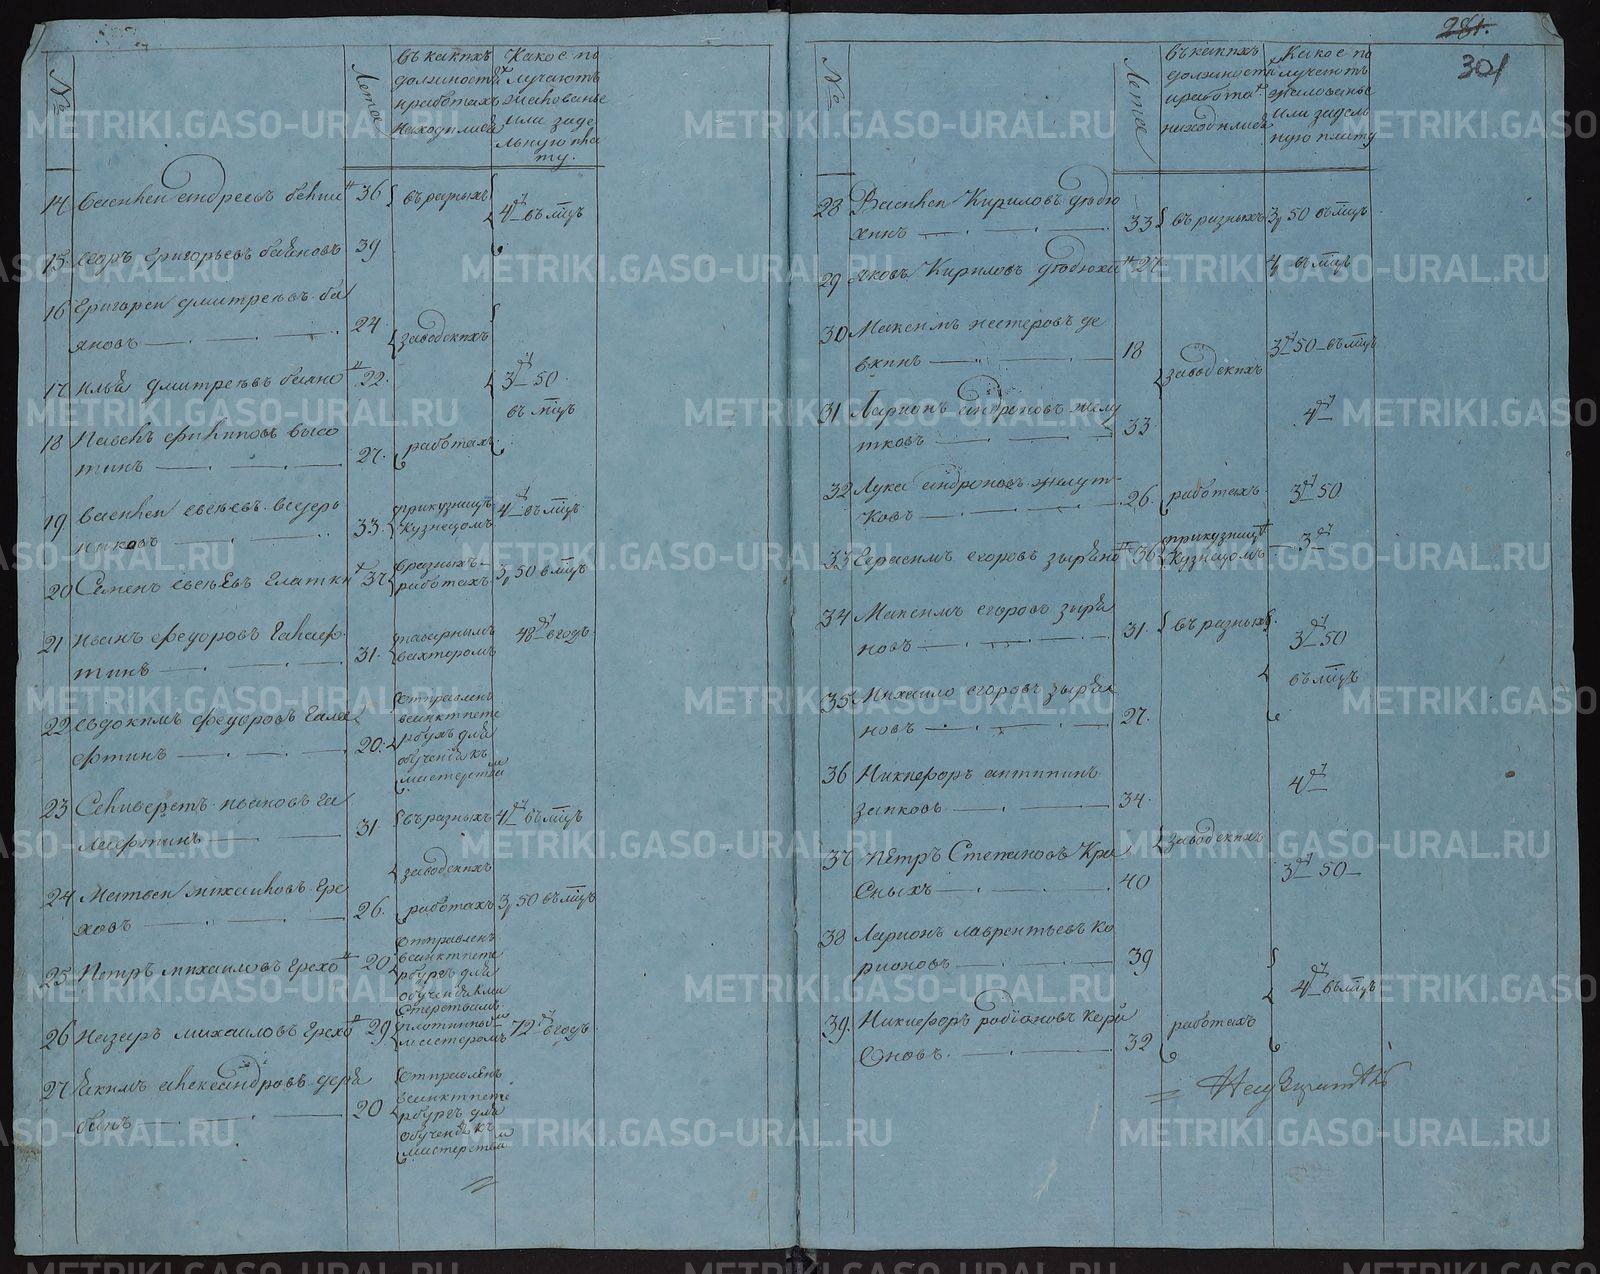 №
Летое
въ какихъ
должностяхъ
и работахъ
находились
Какое по
лучаютъ
жалованье
или заде
льную пла
ту.
14 Василеи андреевъ 36 въ разныхъ 4 въ мцъ
15 Федръ григорьевъ баяновъ 39
16 Григореи дмитреевъ ба
яновъ 24 заводскихъ
17 илья дмитреевъ баяно 22 3 50
въ мцъ
18 Павелъ филиповъ высо
тинъ 27 работахъ
19 василеи евсѣевъ ведерь
никовъ 33 прикузницѣ кузнецомъ 4 въ мцъ
20 Семенъ евсѣевъ глатки 37 вразныхъ работахъ 3 50 вмцъ
21 иванъ федоровъ галаф
тинъ 31 вахтеромъ 48 вгодъ
22 евдокимъ федоровъ гала
фтинъ 20 отправленъ
всанктпете
рбухъ для
обученiя къ
мастерства
23 Селиверстъ ивановъ га
лафтинъ 31 въ разныхъ 4 въ мцъ
заводскихъ
24 Матвеи михаиловъ гре
ховъ 26 работахъ 3 50 въ мцъ
25 Петръ михаиловъ грехо 20 отправленъ
всанктпете
рбургъ для
26 Назаръ михаиловъ грехо 29 плотиннымъ
мастеромъ 72 вгодъ
27 екимъ александровъ деря
бинъ 20 отправленъ
всанктпете
рбургъ для
обученiя къ
мастерства
281.
301
№
Летое
въ какихъ
должностяхъ
и работа
находились
Какое по
лучаютъ
жалованье
или задель
ную плату
28 Василеи Кириловъ дюбю
хинъ 33 въ разныхъ 3 50 въ мцъ
29 яковъ Кириловъ дюбюхи 27 4 въ мцъ
30 Максимъ нестеровъ де
вкинъ 18 заводскихъ 3 50 въ мцъ
31 Ларионъ андроновъ желу
тковъ 33 4
32 Лука андроновъ желут
ковъ 26 работахъ 3 50
33 Герасимъ егоровъ зыряно 36 прикузницѣ кузнецомъ 3
34 Максимъ егоровъ зыря
новъ 31 въ разныхъ 3 50
въ мцъ
35 Михаило егоровъ зыря
новъ 27
36 Никифоръ антипинъ
заиковъ 34 4
заводскихъ
37 Петръ Степановъ Кра
сныхъ 40 3 50
38 Ларионъ лаврентьевъ ко
рионовъ 39 4 въ мцъ
39 Никифоръ родiоновъ кори
оновъ 32 работахъ
METRIKI.GASO-URAL.RU